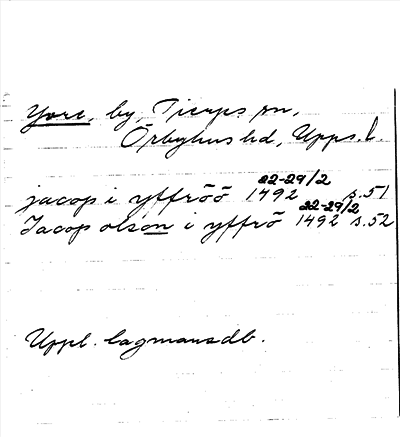 Yvre, by, Ticups sn,
Örbyhus hd, Upps. l.
jacop i yffröö 1492 22-29/2 s. 51
Jacop olson i yffrö 1492 22-29/2 s. 52
Uppl. lagmansdb.